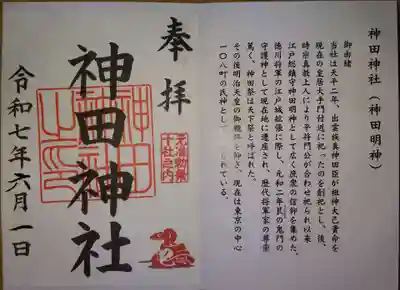 奉拝
神田神社
令和七年六月一日
神田神社（神田明神）
御由緒
当社は天平二年、出雲族真神田臣が祖神大己貴命を
現在の皇居大手門付近に祀ったのを創祀とし、後、
時宗真教上人により平将門公が合わせ祀られ以来
江戸総鎮守神田明神として広く庶衆の信仰を集めた。
徳川将軍の江戸城拡張に際し、元和二年艮の鬼門の
守護神として現在地に遷座され、歴代将軍家の尊崇
篤く、神田祭は天下祭と呼ばれた。
その後明治天皇の御親拝を仰ぎ、現在は東京の中心
一〇八町の氏神として
れている。